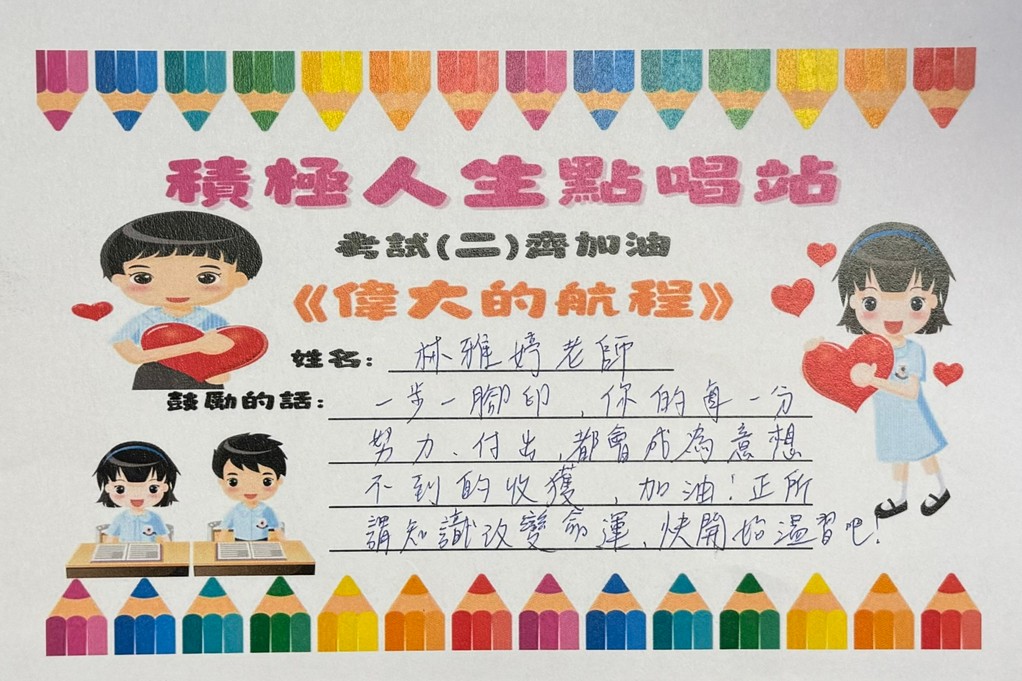 積極人生點唱站
考試(二)齊加油
《偉大的航程》
姓名：林雅婷老師
鼓勵的話：一步一腳印，你的每一分
努力、付出，都會成為意想
不到的收獲，加油！正所
謂知識改變命運、快開始溫習吧！